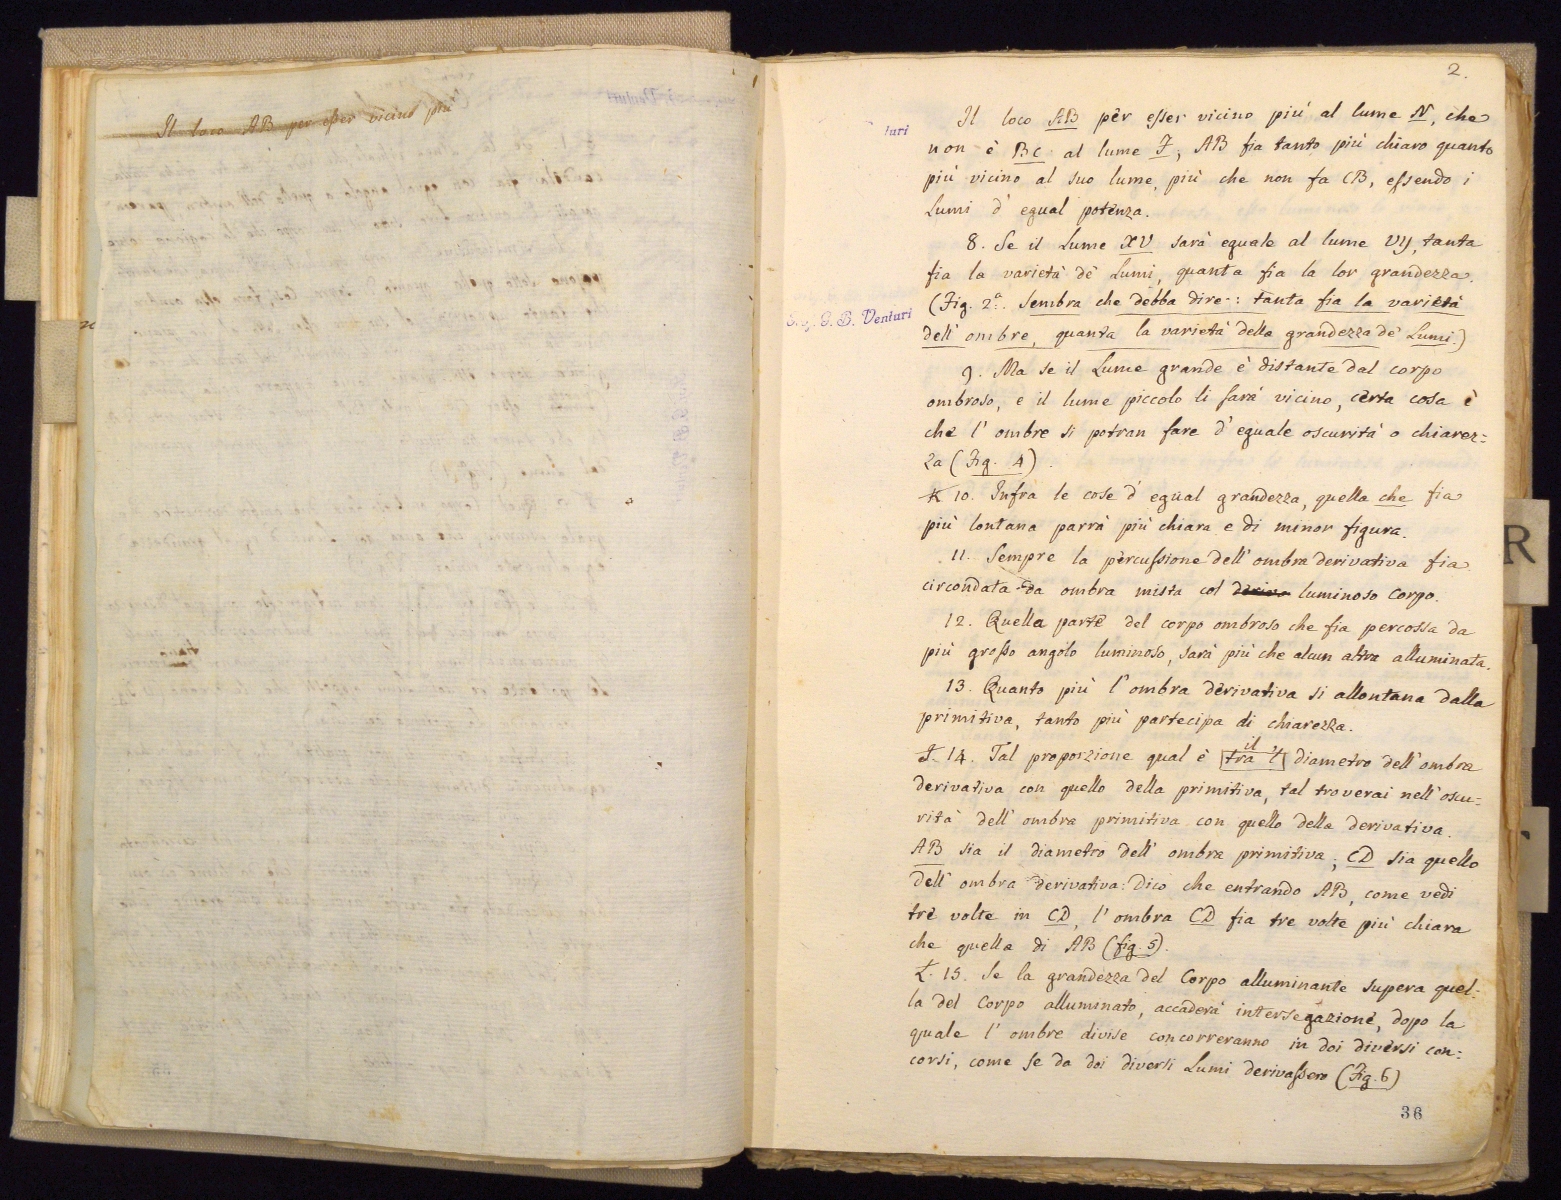 Il loco AB per esser vicino più
2.
Il loco AB per esser vicino più al lume N, che
non è BC al lume F, AB fia tanto più chiaro quanto
più vicino al suo lume, più che non fa CB, essendo i
Lumi d' egual potenza.
8. Se il Lume XV sarà eguale al lume VY, tanta
fia la varietà de' Lumi, quanta fia la lor grandezza.
(Fig. 2ª. Sembra che debba dire: tanta fia la varietà
G. B. Venturi
dell' ombre, quanta la varietà della grandezza de' Lumi.)
9. Ma se il Lume grande è distante dal corpo
ombroso, e il lume piccolo li sarà vicino, certa cosa è
che l' ombre si potran fare d' eguale oscurità o chiarez=
za (Fig. 4)
K 10. Infra le cose d' egual grandezza, quella che fia
più lontana parrà più chiara e di minor figura.
11. Sempre la percussione dell' ombra derivativa fia
circondata da ombra mista col luminoso corpo.
12. Quella parte del corpo ombroso che fia percossa da
più grosso angolo luminoso, sarà più che alcun altra alluminata.
13. Quanto più l' ombra derivativa si allontana dalla
primitiva, tanto più partecipa di chiarezza.
14. Tal proporzione qual è tra 'l il diametro dell' ombra
derivativa con quello della primitiva, tal troverai nell' oscu=
rità dell' ombra primitiva con quello della derivativa.
AB sia il diametro dell' ombra primitiva; CD sia quello
dell' ombra derivativa: Dico che entrando AB, come vedi
tre volte in CD, l' ombra CD fia tre volte più chiara
che quella di AB (fig. 5).
15. Se la grandezza del Corpo alluminante supera quel=
la del Corpo alluminato, accaderà intersegazione, dopo la
quale l' ombre divise concorreranno in doi diversi con=
corsi, come se da doi diversi Lumi derivassero (Fig. 6)
36